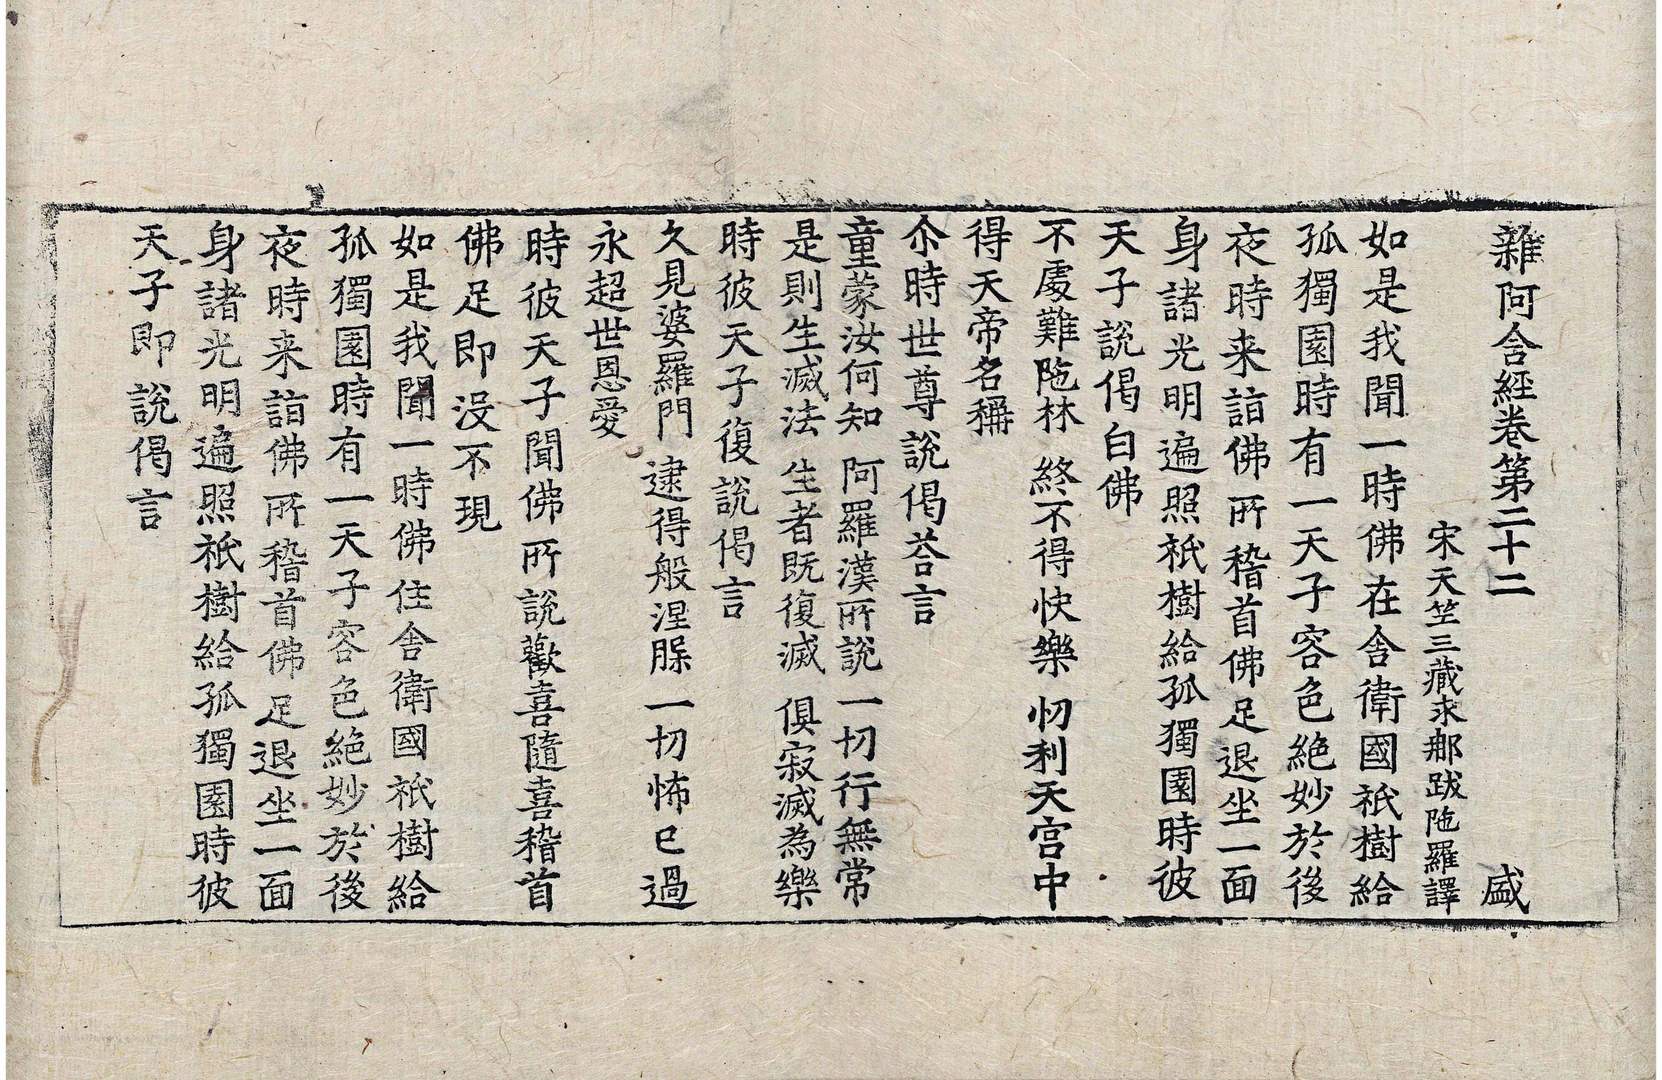 雜阿含經卷第二十二 盛
宋天竺三藏求那跋陁羅譯
如是我聞一時佛在舍衛國祇樹給
孤獨園時有一天子容色絶妙於後
夜時来詣佛所稽首佛足退坐一面
身諸光明遍照祇樹給孤獨園時彼
天子說偈白佛
不處難陁林 終不得快樂 忉利天宫中
得天帝名稱
尒時世尊說偈荅言
童蒙汝何知 阿羅漢所說 一切行無常
是則生滅法 生者既復滅 俱寂滅為樂
時彼天子復說偈言
久見婆羅門 逮得般涅槃 一切怖已過
永超世恩愛
時彼天子聞佛所說歡喜隨喜稽首
佛足即没不現
如是我聞一時佛住舍衛國祇樹給
孤獨園時有一天子容色絶妙於後
夜時来詣佛所稽首佛足退坐一面
身諸光明遍照祇樹給孤獨園時彼
天子即說偈言